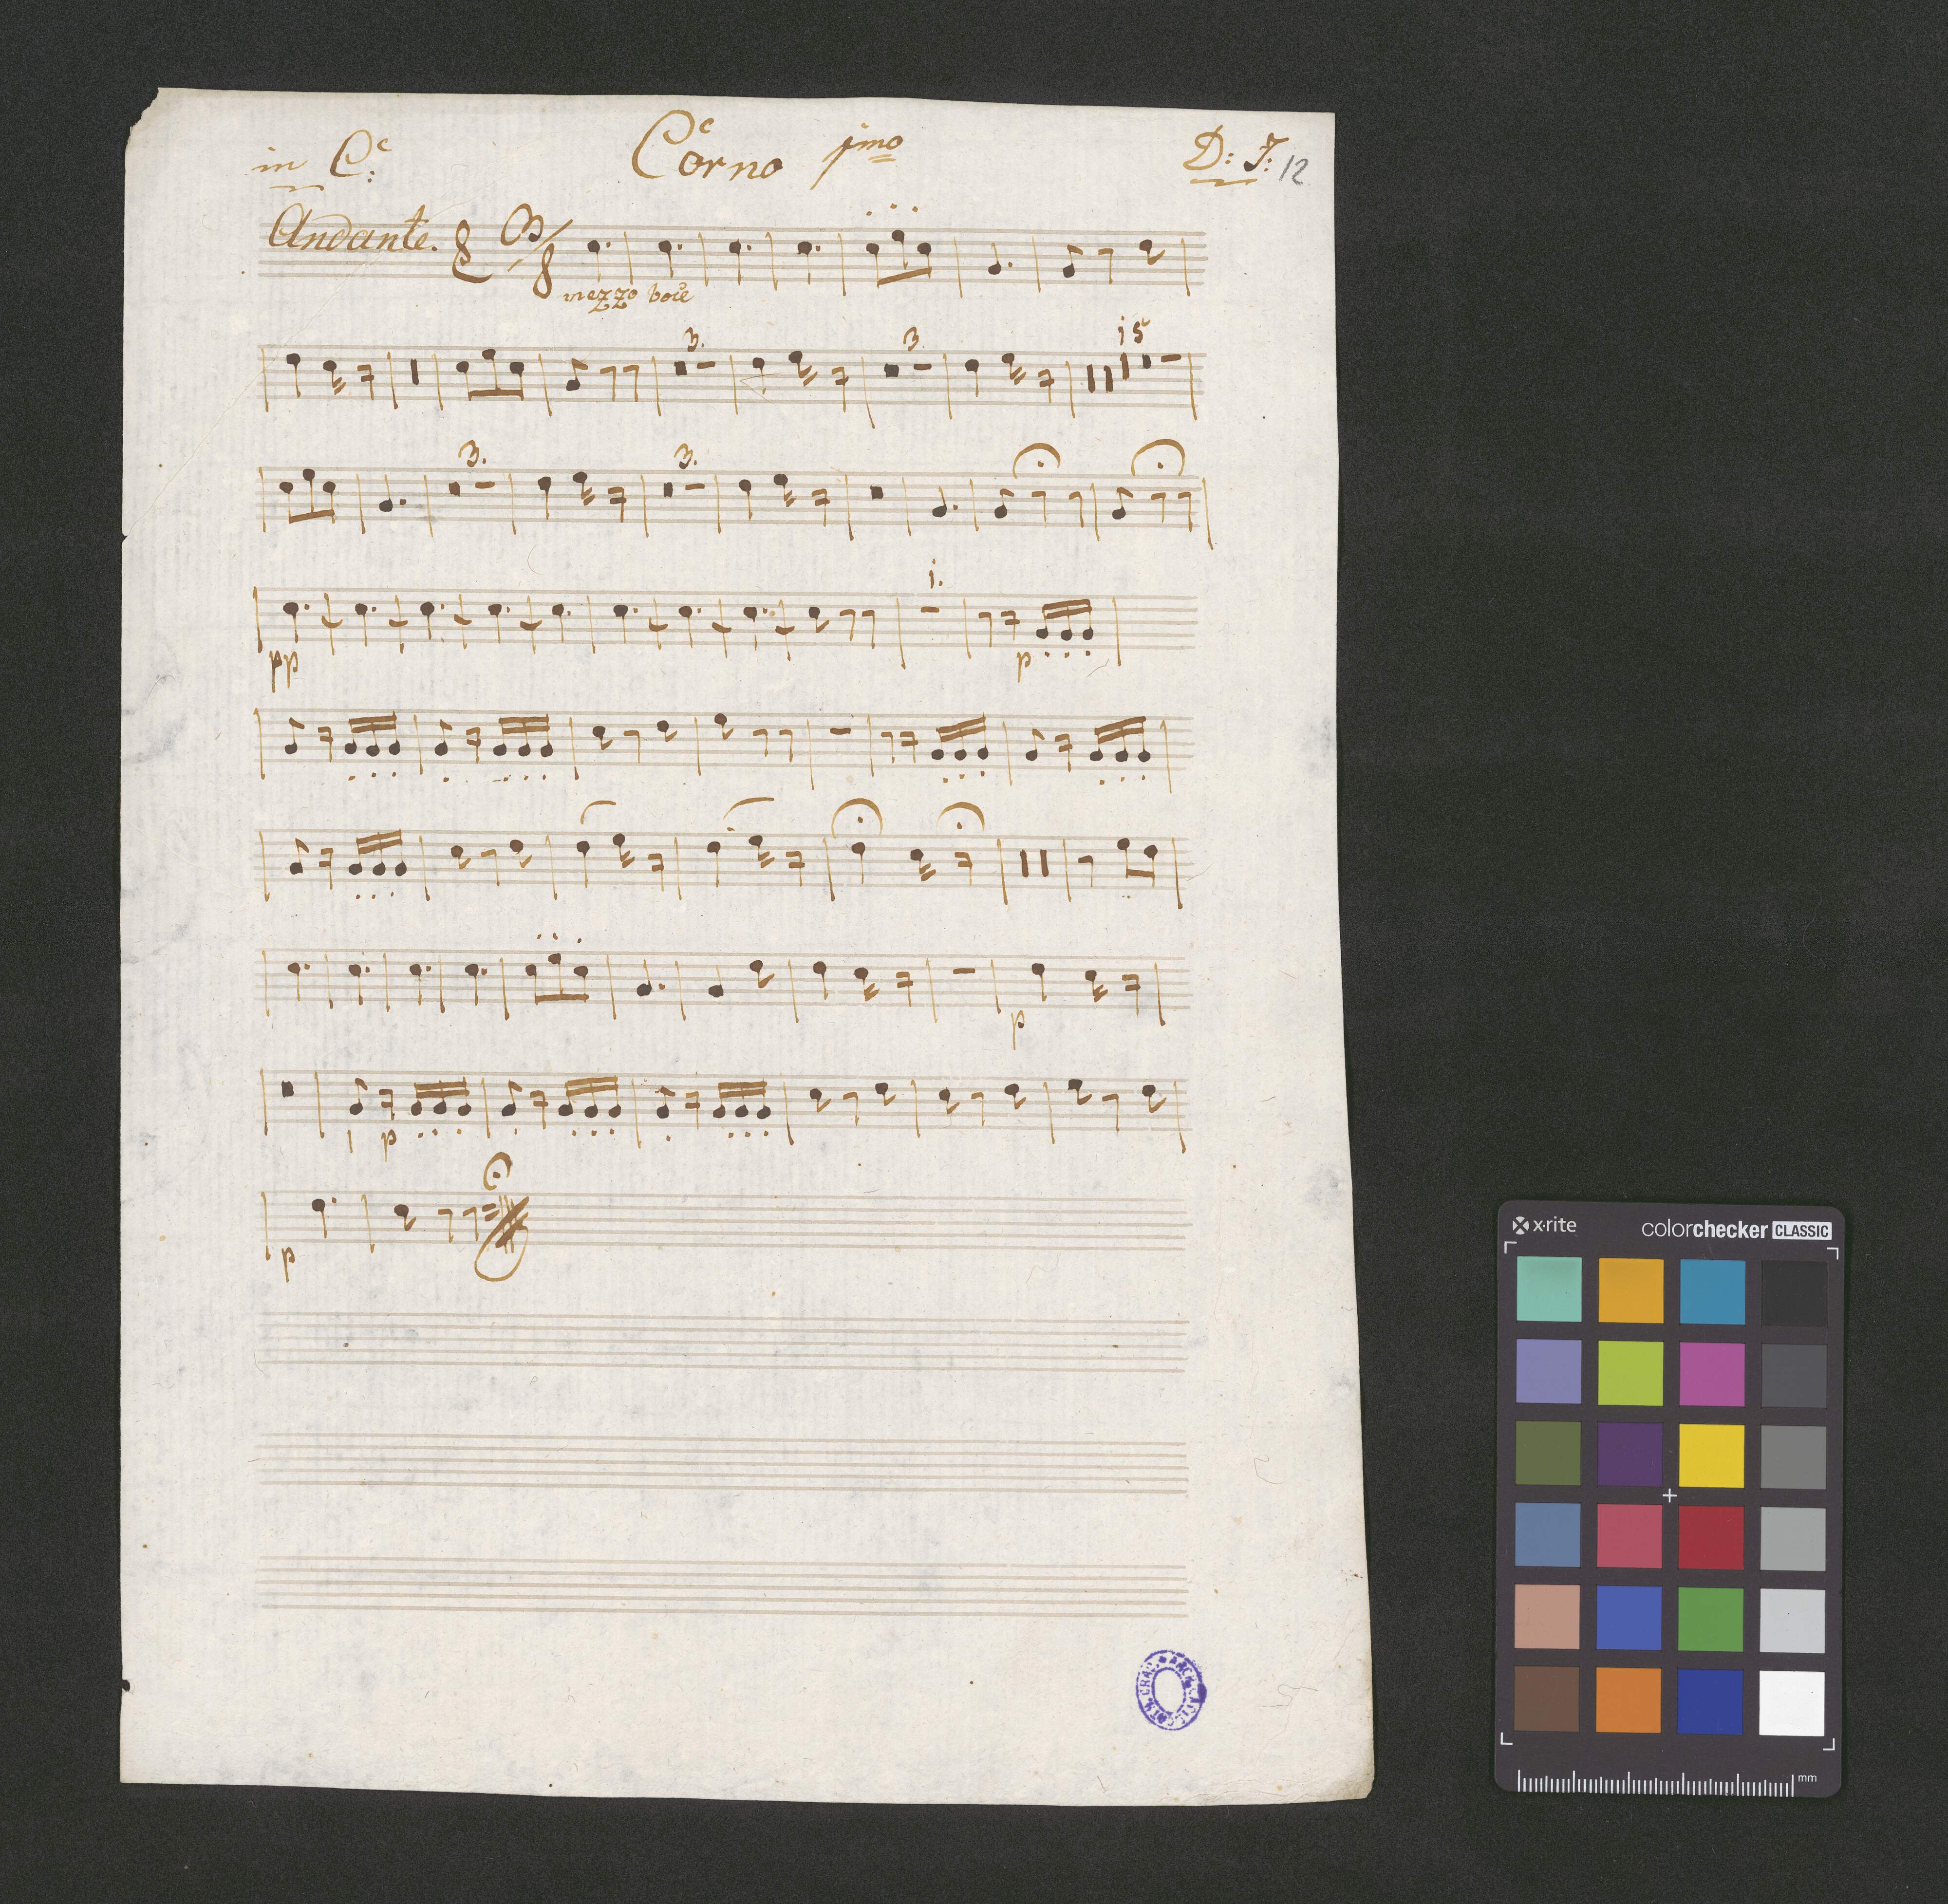 in C: Corno pmo D: J: 12
Andante. 3/8
mezzo voce
3. 3. 15
3. 3.
1.
pp p
p
p
p
x·rite colorchecker CLASSIC
mm